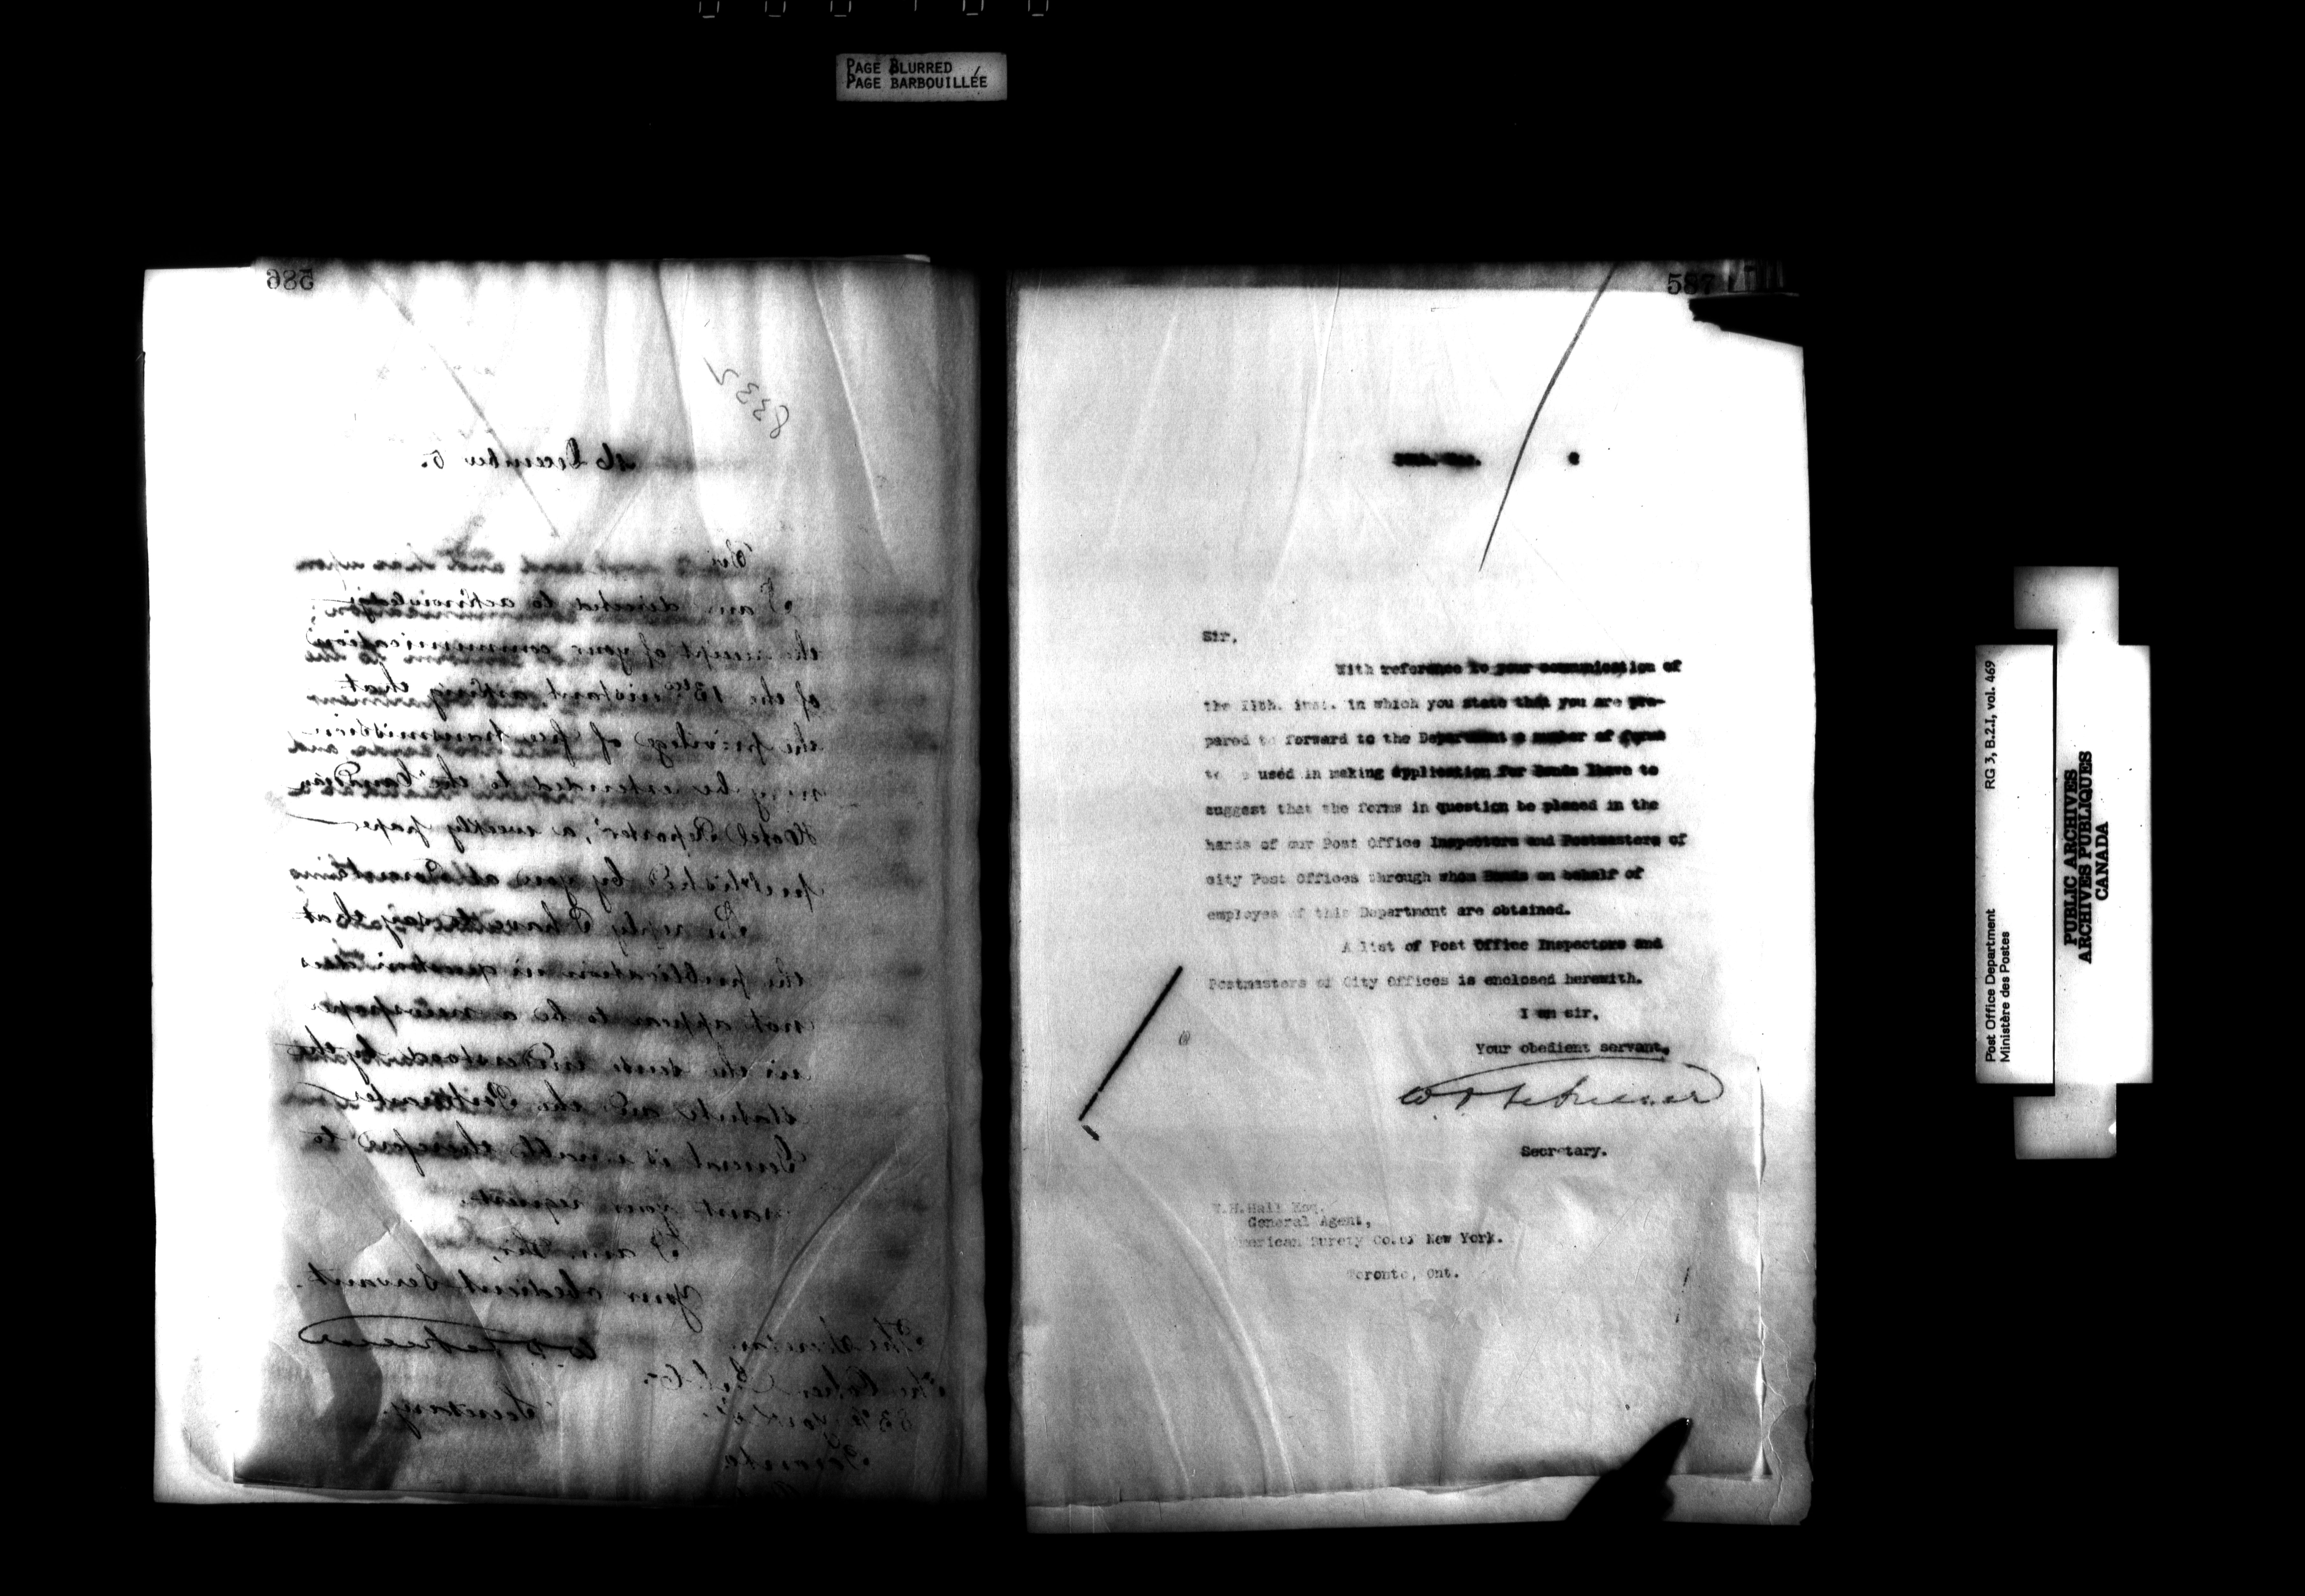 PAGE BLURRED
PAGE BARBOUILLÉE
586
8332
16 December 5.
Sir
I am directed to acknowledge
the receipt of your communication
of the 13th instant asking that
the privilege of free transmission
may be extended to the "Canadian
Hotel Reporter", a weekly paper
published by you at Toronto
In reply I have to say that
the publication in question does
not appear to be a newspaper
in the sense understood by the
statute and the Postmaster
General is unable therefore to
grant your request.
I am, Sir,
Your obedient Servant.
Secretary.
83 York St.
Toronto
587
Sir,
With reference to your communication of
the inst. in which you state that you are pre-
pared to forward to the Department a number of forms
to be used in making application for Bonds I have to
suggest that the forms in question be placed in the
hands of our Post Office Inspectors and Postmasters of
city Post Offices through whom Bonds on behalf of
employes of this Department are obtained.
A list of Post Office Inspectors and
Postmasters of City Offices is enclosed herewith.
I am sir,
Your obedient servant,
Secretary.
W.H.Hall Esq.
General Agent,
American Surety Co.of New York.
Toronto, Ont.
Post Office Department
Ministère des Postes
RG 3, B.2.I, vol. 469
PUBLIC ARCHIVES
ARCHIVES PUBLIQUES
CANADA